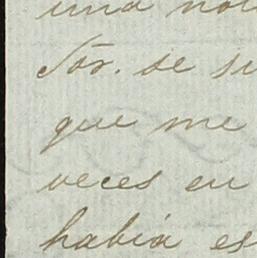 una no
Sor. se si
que me
veces en
había es